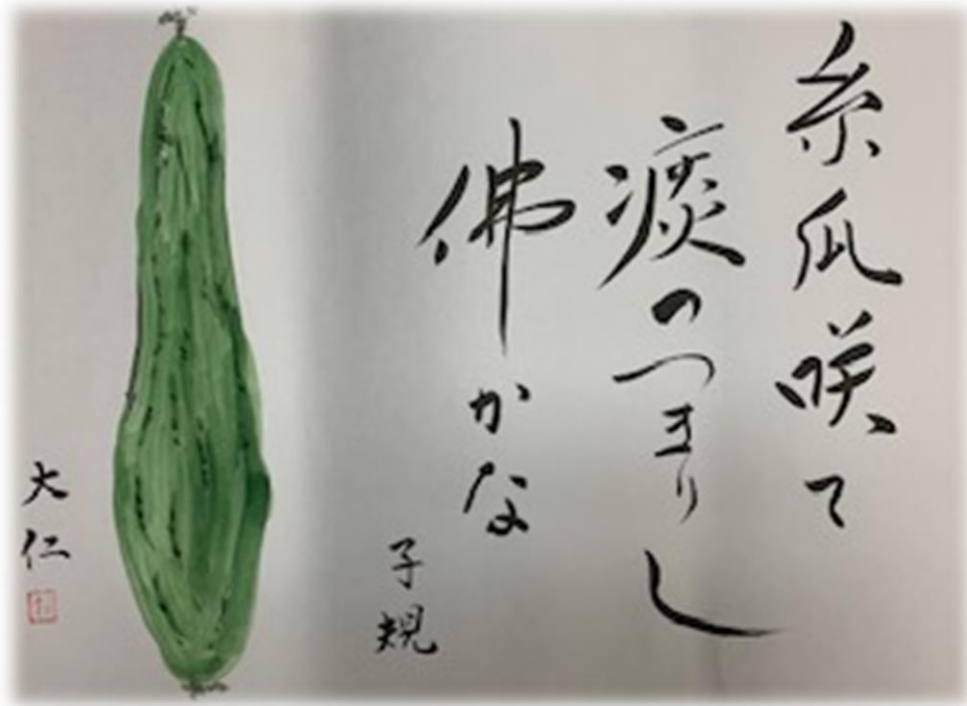 糸瓜咲て
痰のつまりし
佛かな
子規
大仁